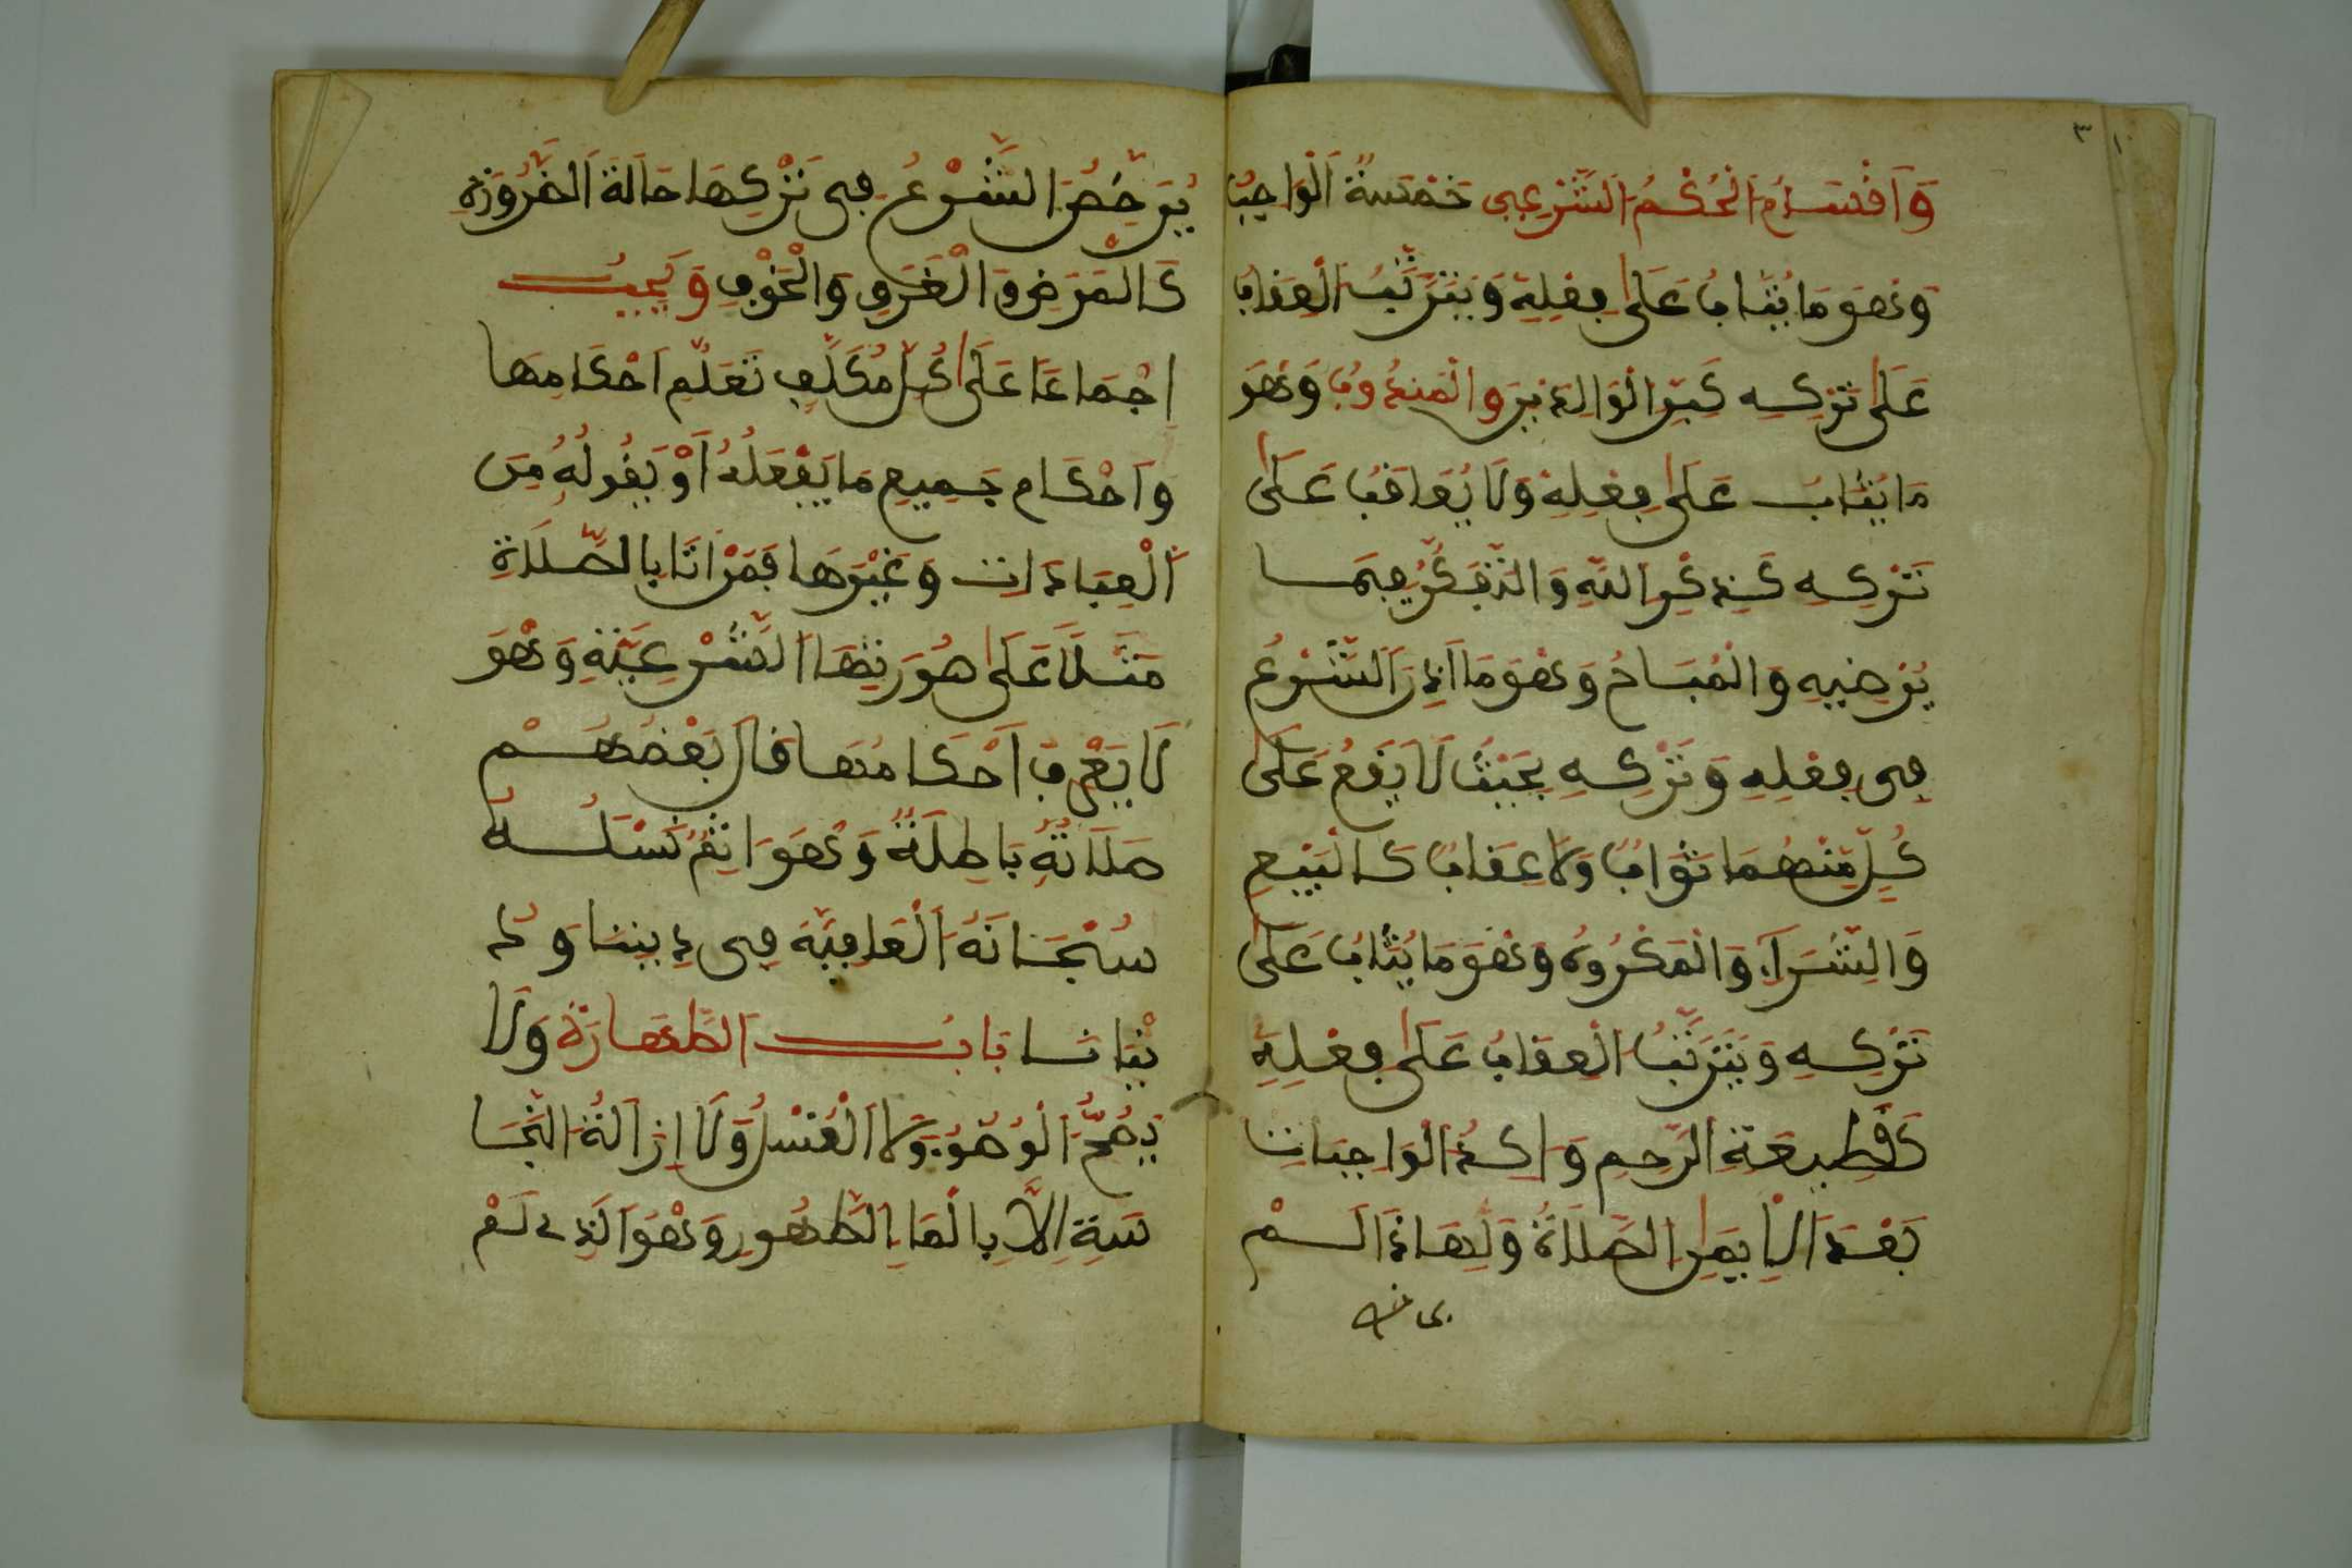 ٣
وَأَقْسَامُ الْحُكْمِ الشَّرْعِيِّ خَمْسَةٌ الْوَاجِبُ
وَهُوَ مَا يُثَابُ عَلَى فِعْلِهِ وَيَتَرَتَّبُ الْعِقَابُ
عَلَى تَرْكِهِ كَبِرِّ الْوَالِدَيْنِ وَالْمَنْدُوبُ وَهُوَ
مَا يُثَابُ عَلَى فِعْلِهِ وَلَا يُعَاقَبُ عَلَى
تَرْكِهِ كَذِكْرِ اللَّهِ وَالتَّفَكُّرِ فِيمَا
يُرْضِيهِ وَالْمُبَاحُ وَهُوَ مَا أَذِنَ الشَّرْعُ
فِي فِعْلِهِ وَتَرْكِهِ بِحَيْثُ لَا يَقَعُ عَلَى
كُلٍّ مِنْهُمَا ثَوَابٌ وَلَا عِقَابٌ كَالْبَيْعِ
وَالشِّرَاءِ وَالْمَكْرُوهُ وَهُوَ مَا يُثَابُ عَلَى
تَرْكِهِ وَيَتَرَتَّبُ الْعِقَابُ عَلَى فِعْلِهِ
كَقَطِيعَةِ الرَّحِمِ وَءَاكَدُ الْوَاجِبَاتِ
بَعْدَ الْإِيمَانِ الصَّلَاةُ وَلِهَاذَا لَمْ
يُرَخِّصِ الشَّرْعُ فِي تَرْكِهَا حَالَةَ الضَّرُورَةِ
كَالْمَرَضِ وَالْغَرَقِ وَالْخَوْفِ وَيَجِبُ
إِجْمَاعًا عَلَى كُلِّ مُكَلَّفٍ تَعَلُّمُ أَحْكَامِهَا
وَأَحْكَامِ جَمِيعِ مَا يَفْعَلُهُ أَوْ يَقُولُهُ مِنَ
الْعِبَادَاتِ وَغَيْرِهَا فَمَنْ أَتَا بِالصَّلَاةِ
مَثَلًا عَلَى صُورَتِهَا الشَّرْعِيَّةِ وَهُوَ
لَا يَعْرِفُ أَحْكَامَهَا قَالَ بَعْضُهُمْ
صَلَاتُهُ بَاطِلَةٌ وَهُوَ ءَاثِمٌ نَسْئَلُهُ
سُبْحَانَهُ الْعَافِيَةَ فِي دِينِنَا وَدُ
نْيَانَا بَابُ الطَّهَارَةِ وَلَا
يَصِحُّ الْوُضُوءُ وَلَا الْغُسْلُ وَلَا إِزَالَةُ النَّجَا
سَةِ إِلَّا بِالْمَاءِ الطَّهُورِ وَهُوَ الَّذِي لَمْ